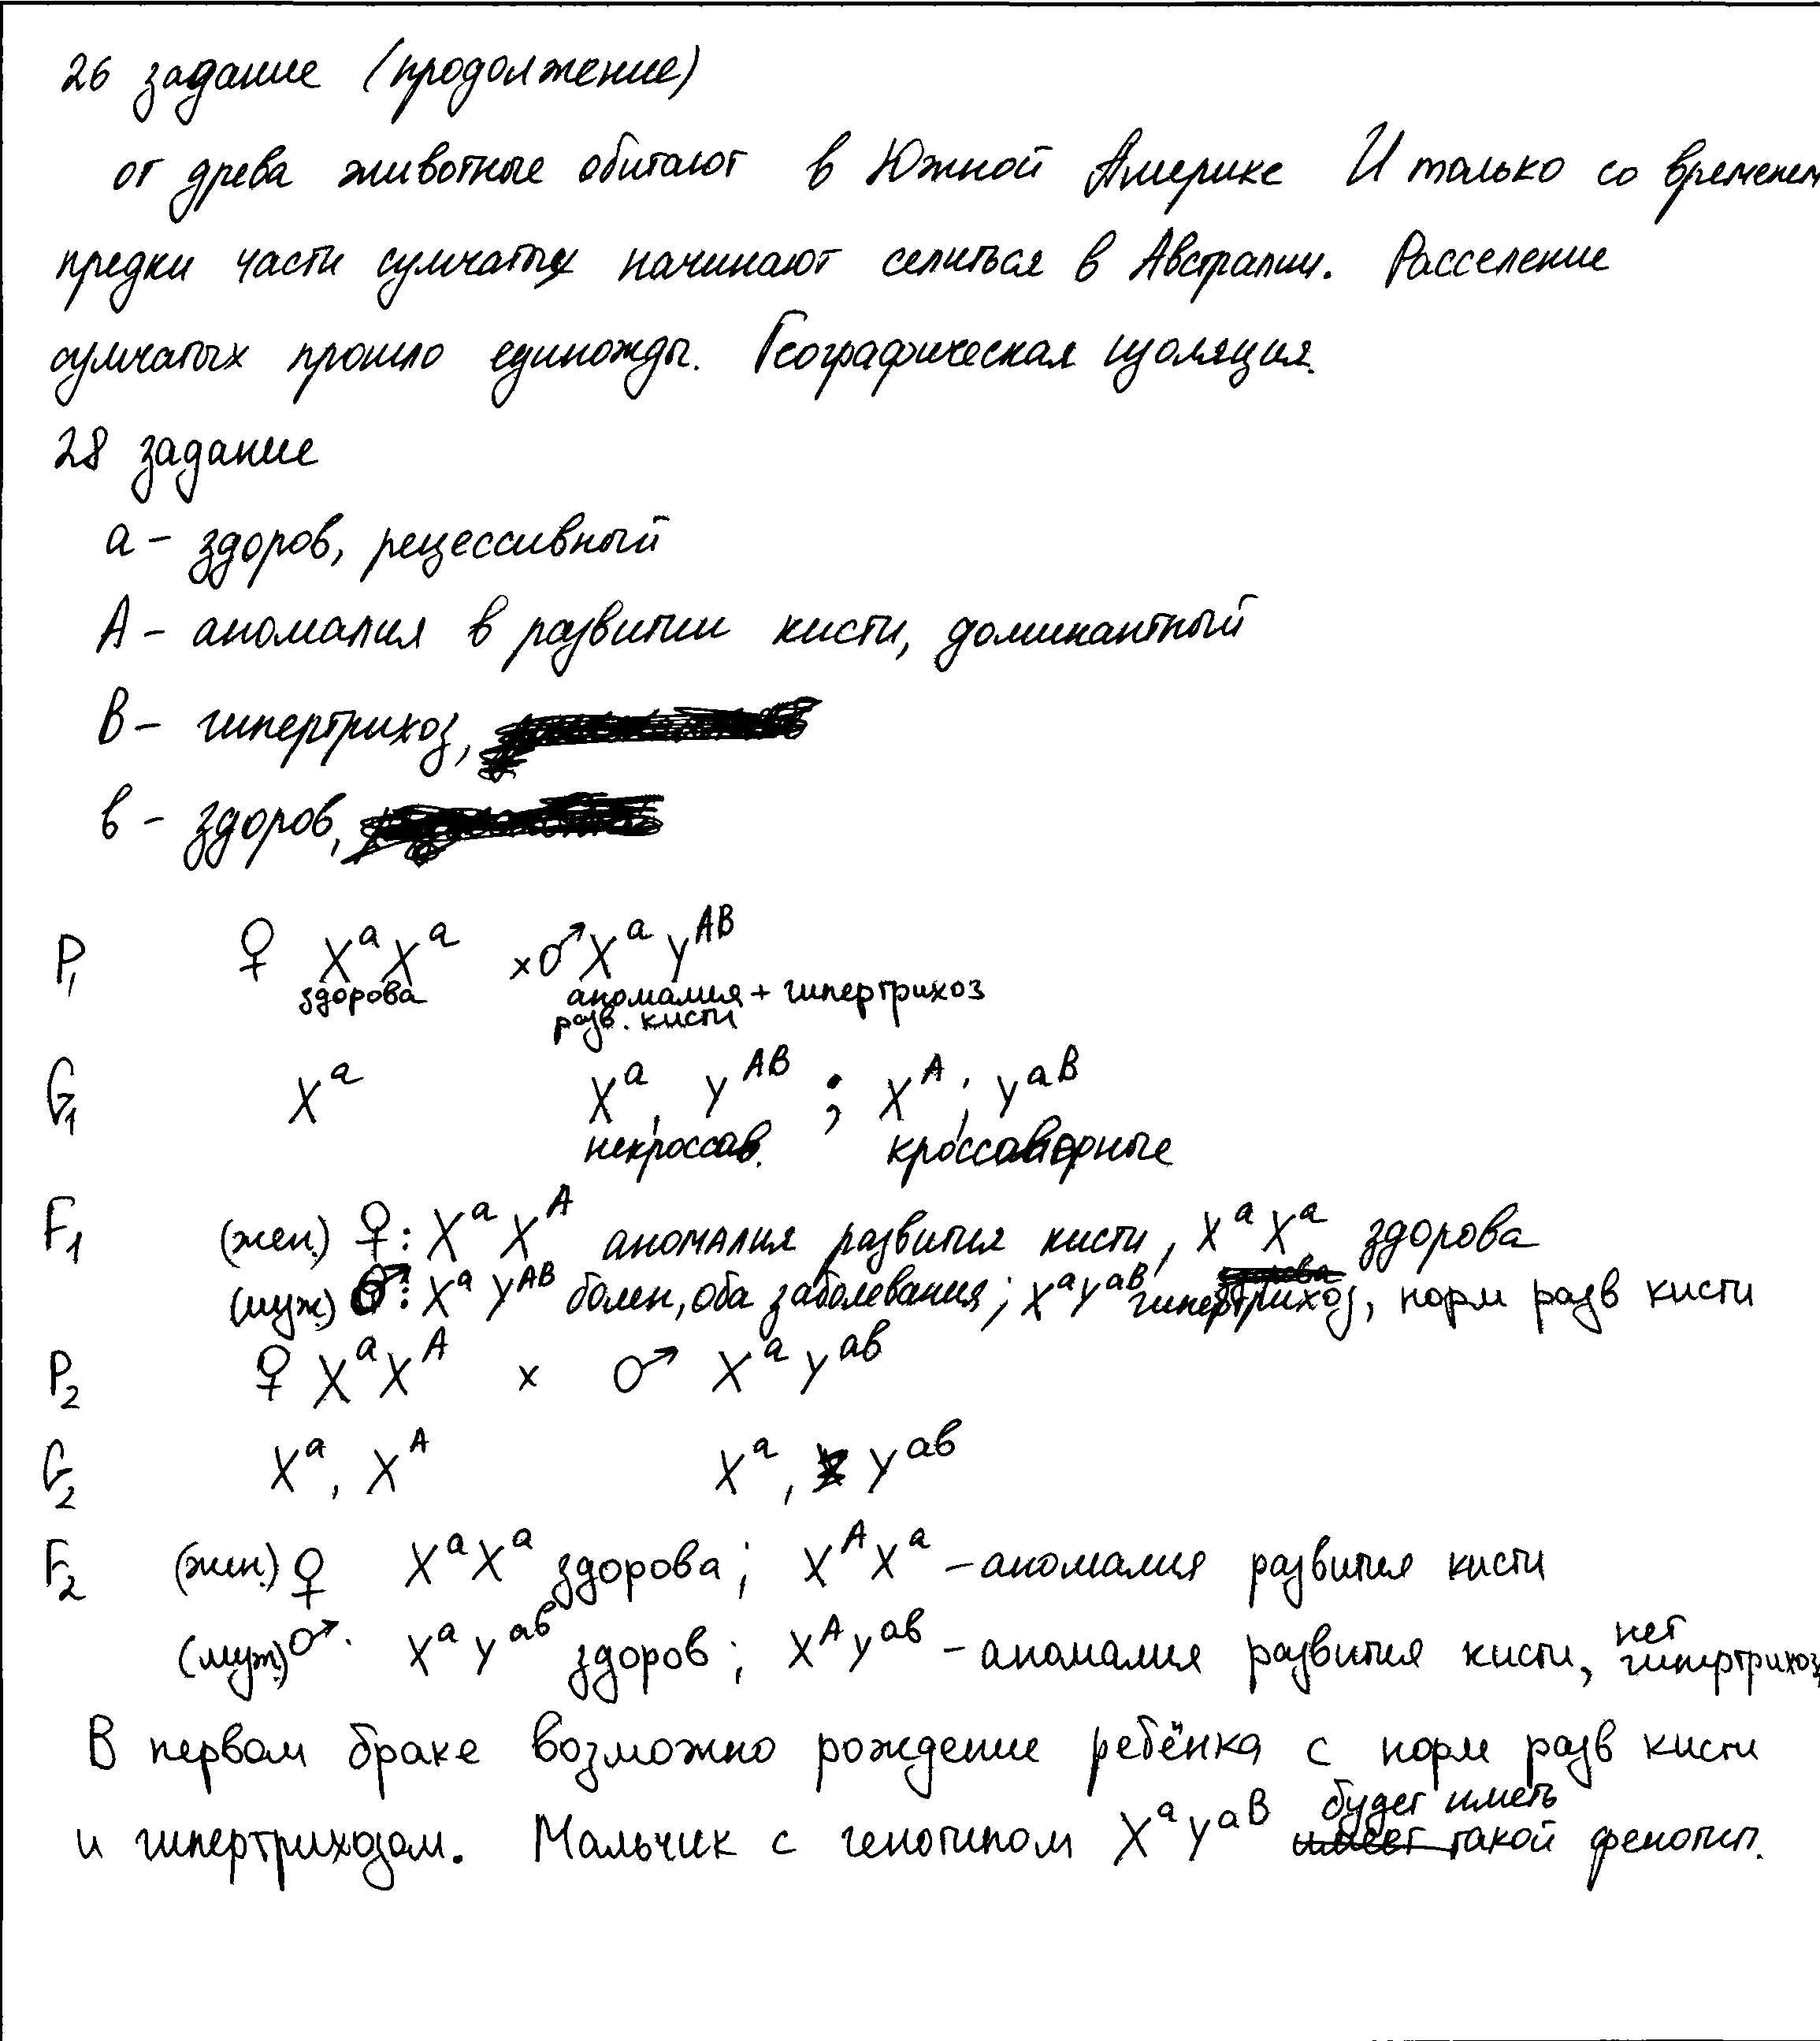 26 задание (продолжение)
от древа животные обитают в Южной Америке И только со временем
предки части сумчатых начинают селиться в Австралии. Расселение
сумчатых прошло единожды. Географическая изоляция.
28 задание
а – здоров, рецессивный
А – аномалия в развитии кисти, доминантный
В – гипертрихоз,
в – здоров,
P₁ ♀ XᵃXᵃ x ♂ XᵃYᴬᴮ
здорова аномалия + гипертрихоз
разв. кисти
G₁ Xᵃ Xᵃ, Yᴬᴮ ; Xᴬ, Yᵃᴮ
некроссов. кроссоверные
F₁ (жен.) ♀: XᵃXᴬ аномалия развития кисти, XᵃXᵃ здорова
(муж) ♂: XᵃYᴬᴮ болен, оба заболевания; XᵃYᵃᴮ гипертрихоз, норм разв кисти
P₂ ♀ XᵃXᴬ x ♂ XᵃYᵃᵇ
G₂ Xᵃ, Xᴬ Xᵃ, Yᵃᵇ
F₂ (жен.) ♀ XᵃXᵃ здорова; XᴬXᵃ – аномалия развития кисти
(муж.) ♂. XᵃYᵃᵇ здоров; XᴬYᵃᵇ – аномалия развития кисти, нет гипертрихоз
В первом браке возможно рождение ребёнка с норм разв кисти
и гипертрихозом. Мальчик с генотипом XᵃYᵃᴮ будет иметь такой фенотип.